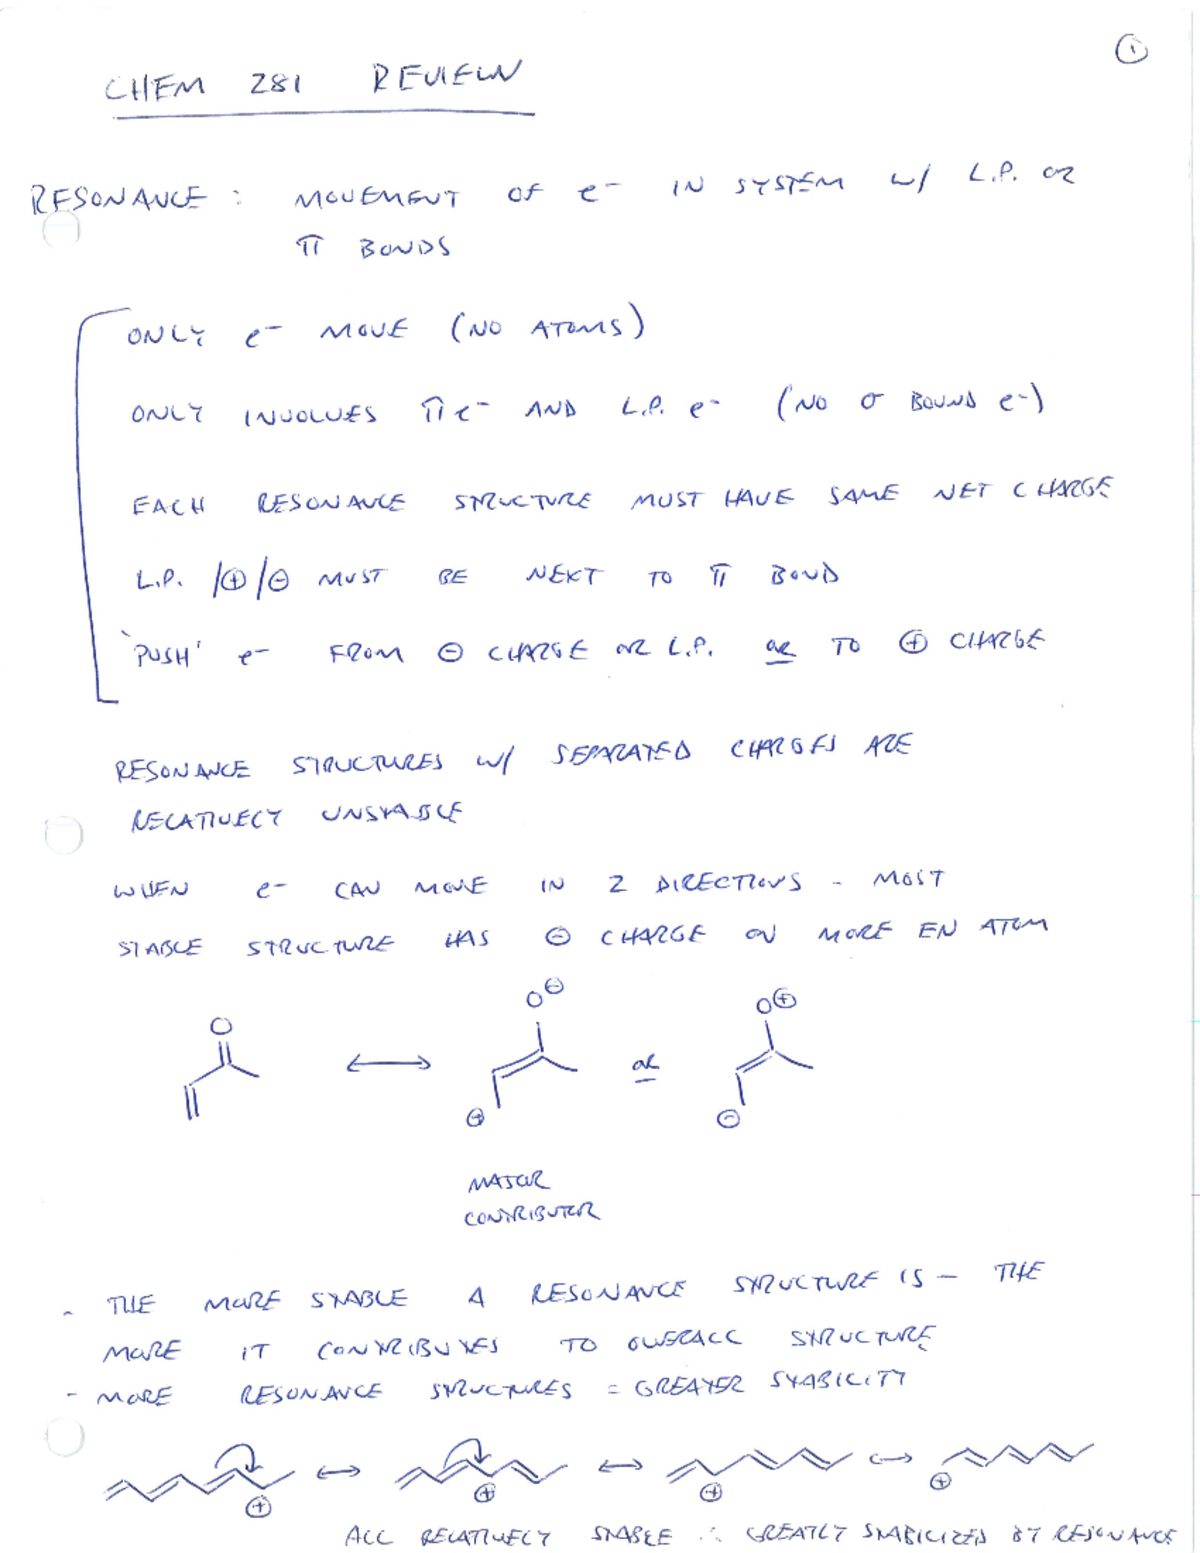 ①
CHEM 281 REVIEW
RESONANCE : MOVEMENT OF e⁻ IN SYSTEM w/ L.P. OR
π BONDS
ONLY e⁻ MOVE (NO ATOMS)
ONLY INVOLVES π e⁻ AND L.P. e⁻ (NO σ BOUND e⁻)
EACH RESONANCE STRUCTURE MUST HAVE SAME NET CHARGE
L.P. /⊕/⊖ MUST BE NEXT TO π BOND
'PUSH' e⁻ FROM ⊖ CHARGE OR L.P. OR TO ⊕ CHARGE
RESONANCE STRUCTURES w/ SEPARATED CHARGES ARE
RELATIVELY UNSTABLE
WHEN e⁻ CAN MOVE IN 2 DIRECTIONS - MOST
STABLE STRUCTURE HAS ⊖ CHARGE ON MORE EN ATOM
O ↔ O⊖ ⊕ OR O⊕ ⊖
MAJOR
CONTRIBUTER
- THE MORE STABLE A RESONANCE STRUCTURE IS - THE
MORE IT CONTRIBUTES TO OVERALL STRUCTURE
- MORE RESONANCE STRUCTURES = GREATER STABILITY
⊕ ↔ ⊕ ↔ ⊕ ↔ ⊕
ALL RELATIVELY STABLE ∴ GREATLY STABILIZED BY RESONANCE